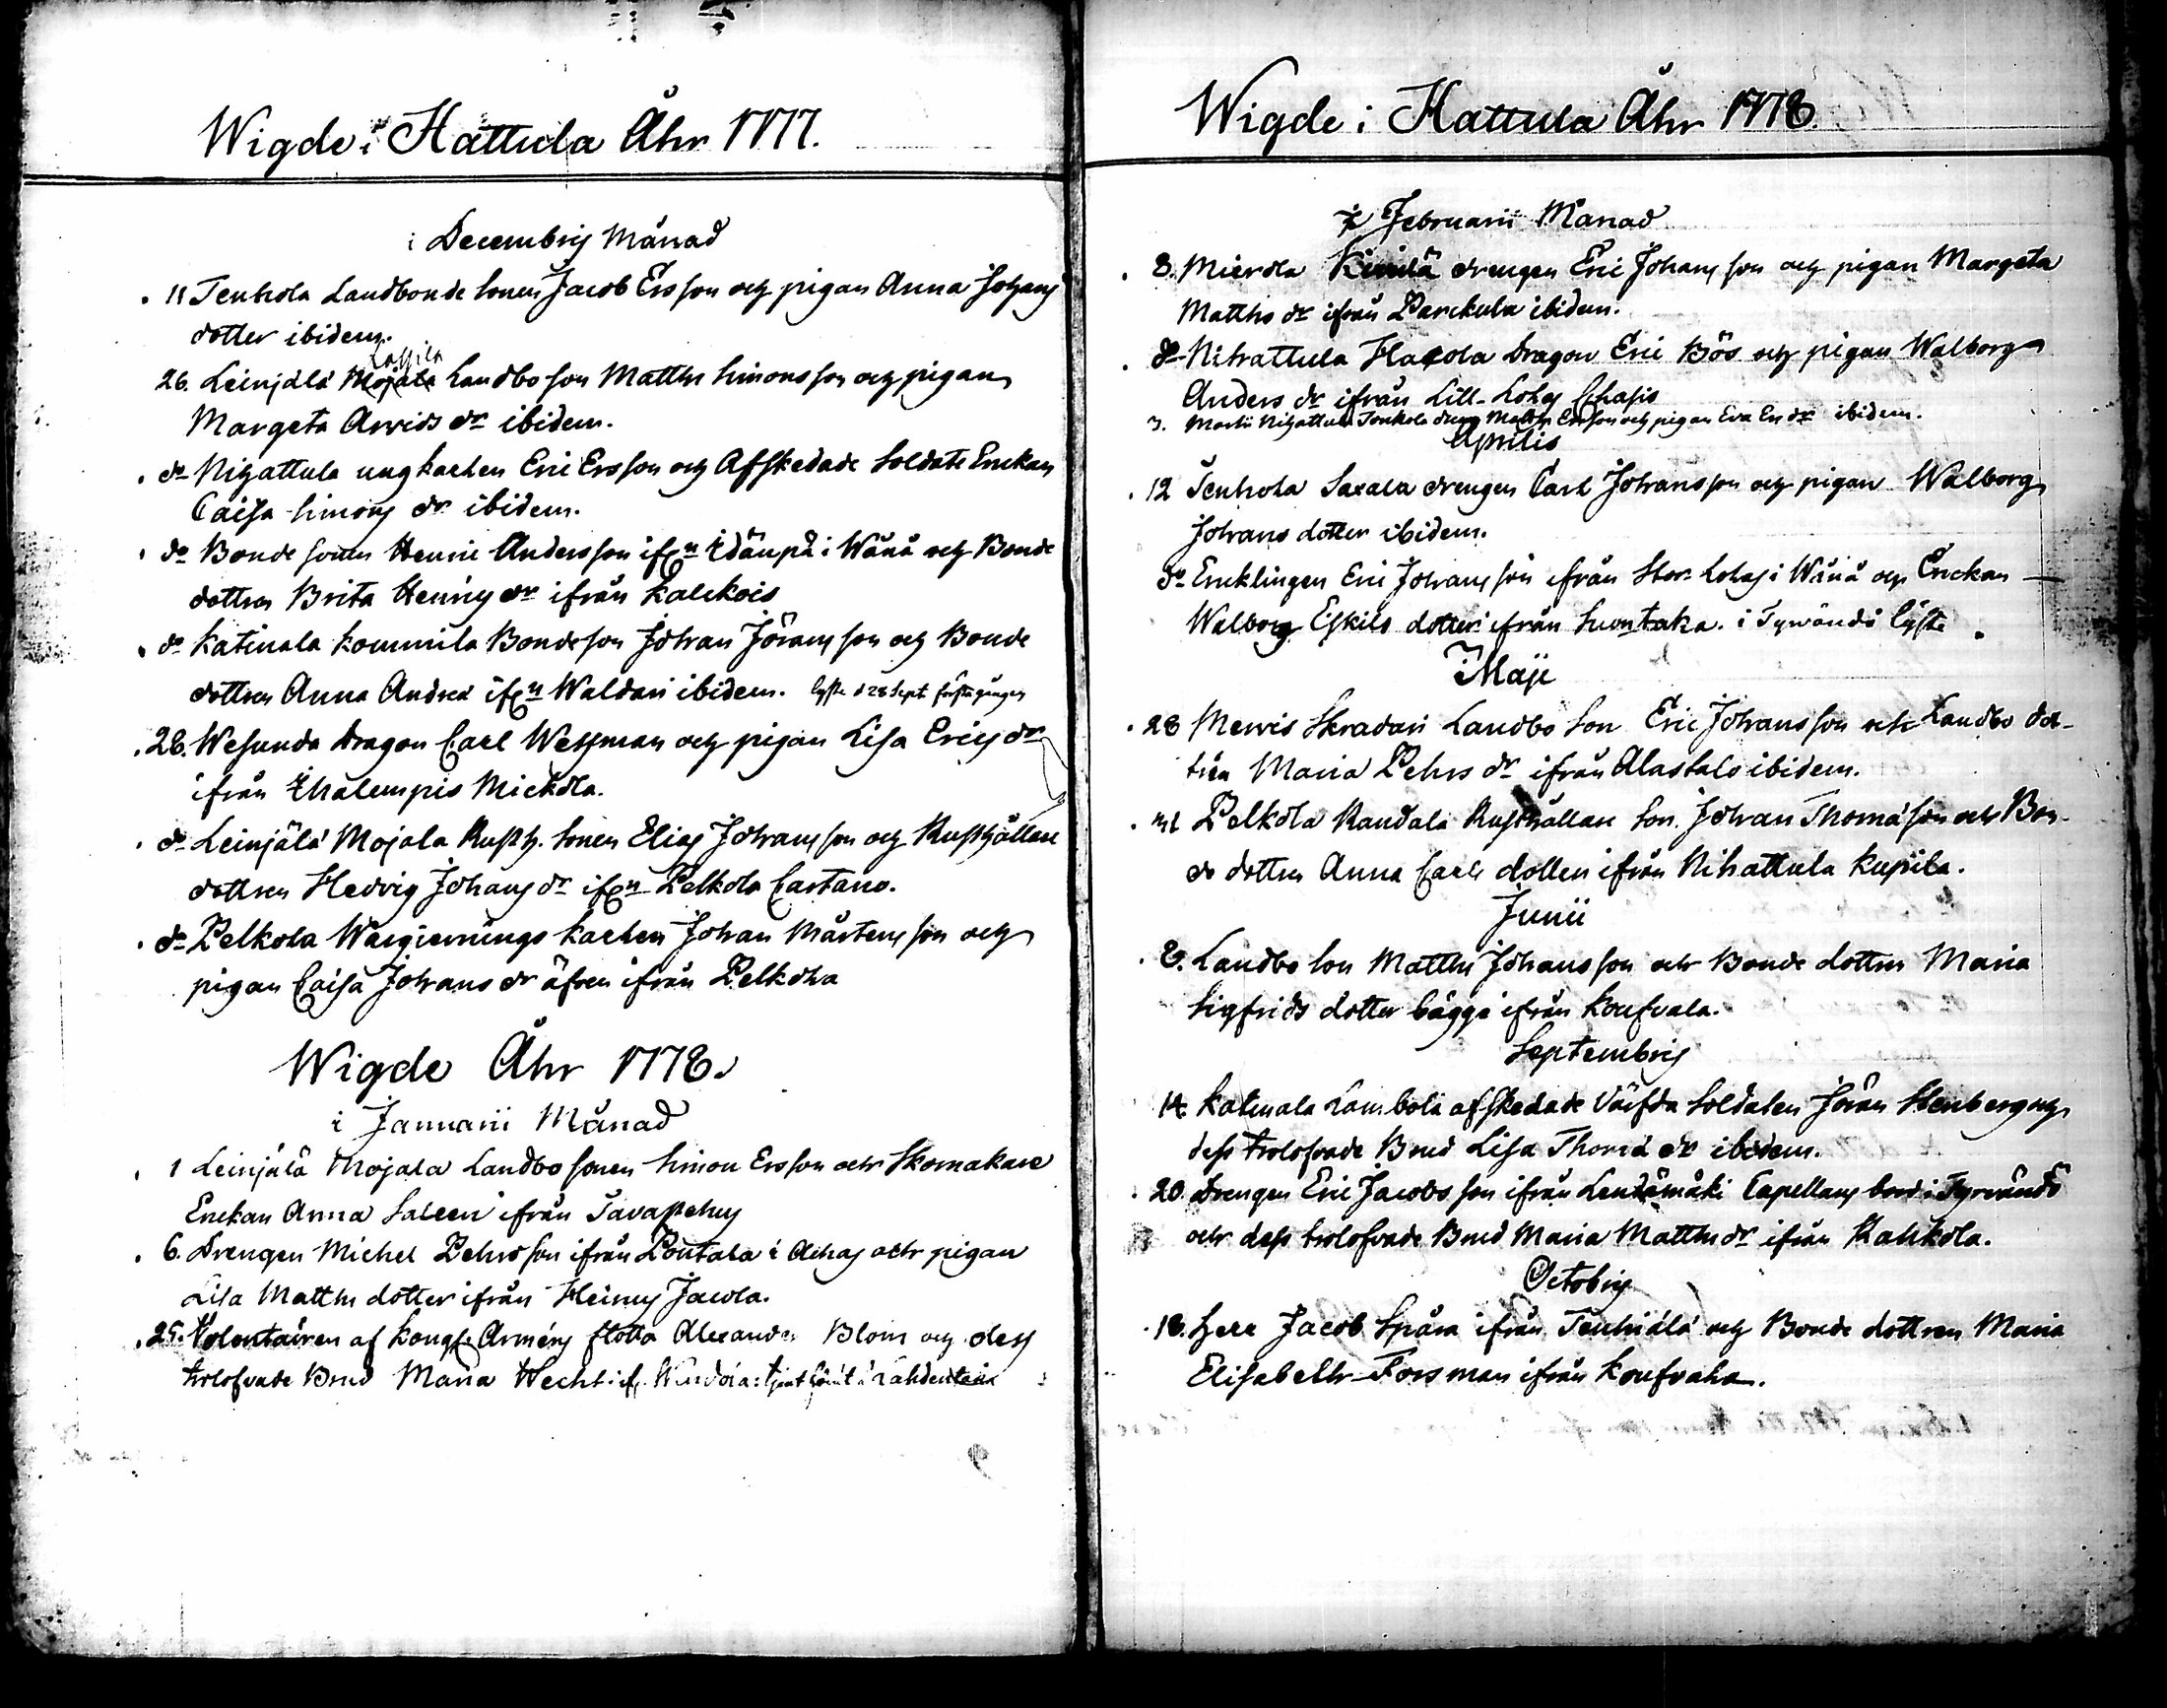 Wigde i Hattula Åhr 1777.
i Decembris Månad
11 Tenhola Landbonde sonen Jacob Ersson och pigan Anna Johans
dotter ibidem.
Cassila
26. Leinjälä Mojala Landbo son Matths Simonsson och pigan
Margeta Arvids dr ibidem.
do Nihattula ungkarlen Eric Ersson och Afskedade Soldats Enckan
Caisa Simons dr ibidem.
do Bonde sonen Henric Andersson ifrn Idänpä i Wånå och Bonde
dottren Brita Henrics dr ifrån Kalckois
do Katinala Kommila Bondeson Johan Jöransson och Bonde
dottren Anna Andreæ ifrn Waldari ibidem. lyste d 28 Sept. första gången
28. Wesunda Dragon Carl Wessman och pigan Lisa Erics dr
ifrån Ihalempis Mickola.
do Leinjälä Mojala Rusth. sonen Elias Johansson och Rusthållare
dottren Hedvig Johans dr ifrn Pelkola Cartano.
do Pelkola Wargierings Karlen Johan Mårtensson och
pigan Caisa Johans dr äfven ifrån Pelkola
Wigde Åhr 1778.
i Januarii Månad
1 Leinjälä Mojala Landbo sonen Simon Ersson och Skomakare
Enckan Anna Saleen ifrån Tavastehus
6. Drengen Michel Pehrsson ifrån Pontala i Achas och pigan
Lisa Matths dotter ifrån Heinus Jacola.
25. Volontairen af Kongl. Arméns flotta Alexander Blom och dess
trolofvade Brud Maria Hecht
Wigde i Hattula Åhr 1778.
i Februarii Månad
8. Mierola drengen Eric Johansson och pigan Margeta
Matths dr ifrån Parckula ibidem.
do Nihattula Hacola Dragon Eric Bös och pigan Walborg
Anders dr ifrån Lill-Lohas
3. Martii Nihattula Tonkola dreng Matths Ersson och pigan Eva Ers dr ibidem.
Aprilis
12 Tenhola Saxala drengen Carl Johansson och pigan Walborg
Johans dotter ibidem.
do Encklingen Eric Johansson ifrån Stor-Lohas i Wånå och Enckan
Walborg Eskils dotter ifrån Suontaka. i Tyrvändö lyste
i Maji
28 Mervis Skradari Landbo Son Eric Johansson och Landbo dot-
tren Maria Pehrs dr ifrån Alastalo ibidem.
ut Pelkola Raudala Rusthållare Son Johan Thomæson och Bon-
de dottren Anna Carls dotter ifrån Nihattula Kupila.
Junii
8. Landbo son Matths Johansson och Bonde dottren Maria
Sigfrids dotter bägge ifrån Koufvala.
Septembris
14. Katinala Lambola afskedade Värfda Soldaten Jöran Stenberg och
dess trolofvade Brud Lisa Thomæ dr ibidem.
20. Drengen Eric Jacobsson ifrån Lendämäki Capellans bord i Tyrvändö
och dess trolofvade Brud Maria Matths dr ifrån Rahkola.
Octobris
18. Herr Jacob Spåra ifrån Tenhiälä och Bonde dottren Maria
Elisabeth Forsman ifrån Koufvala.